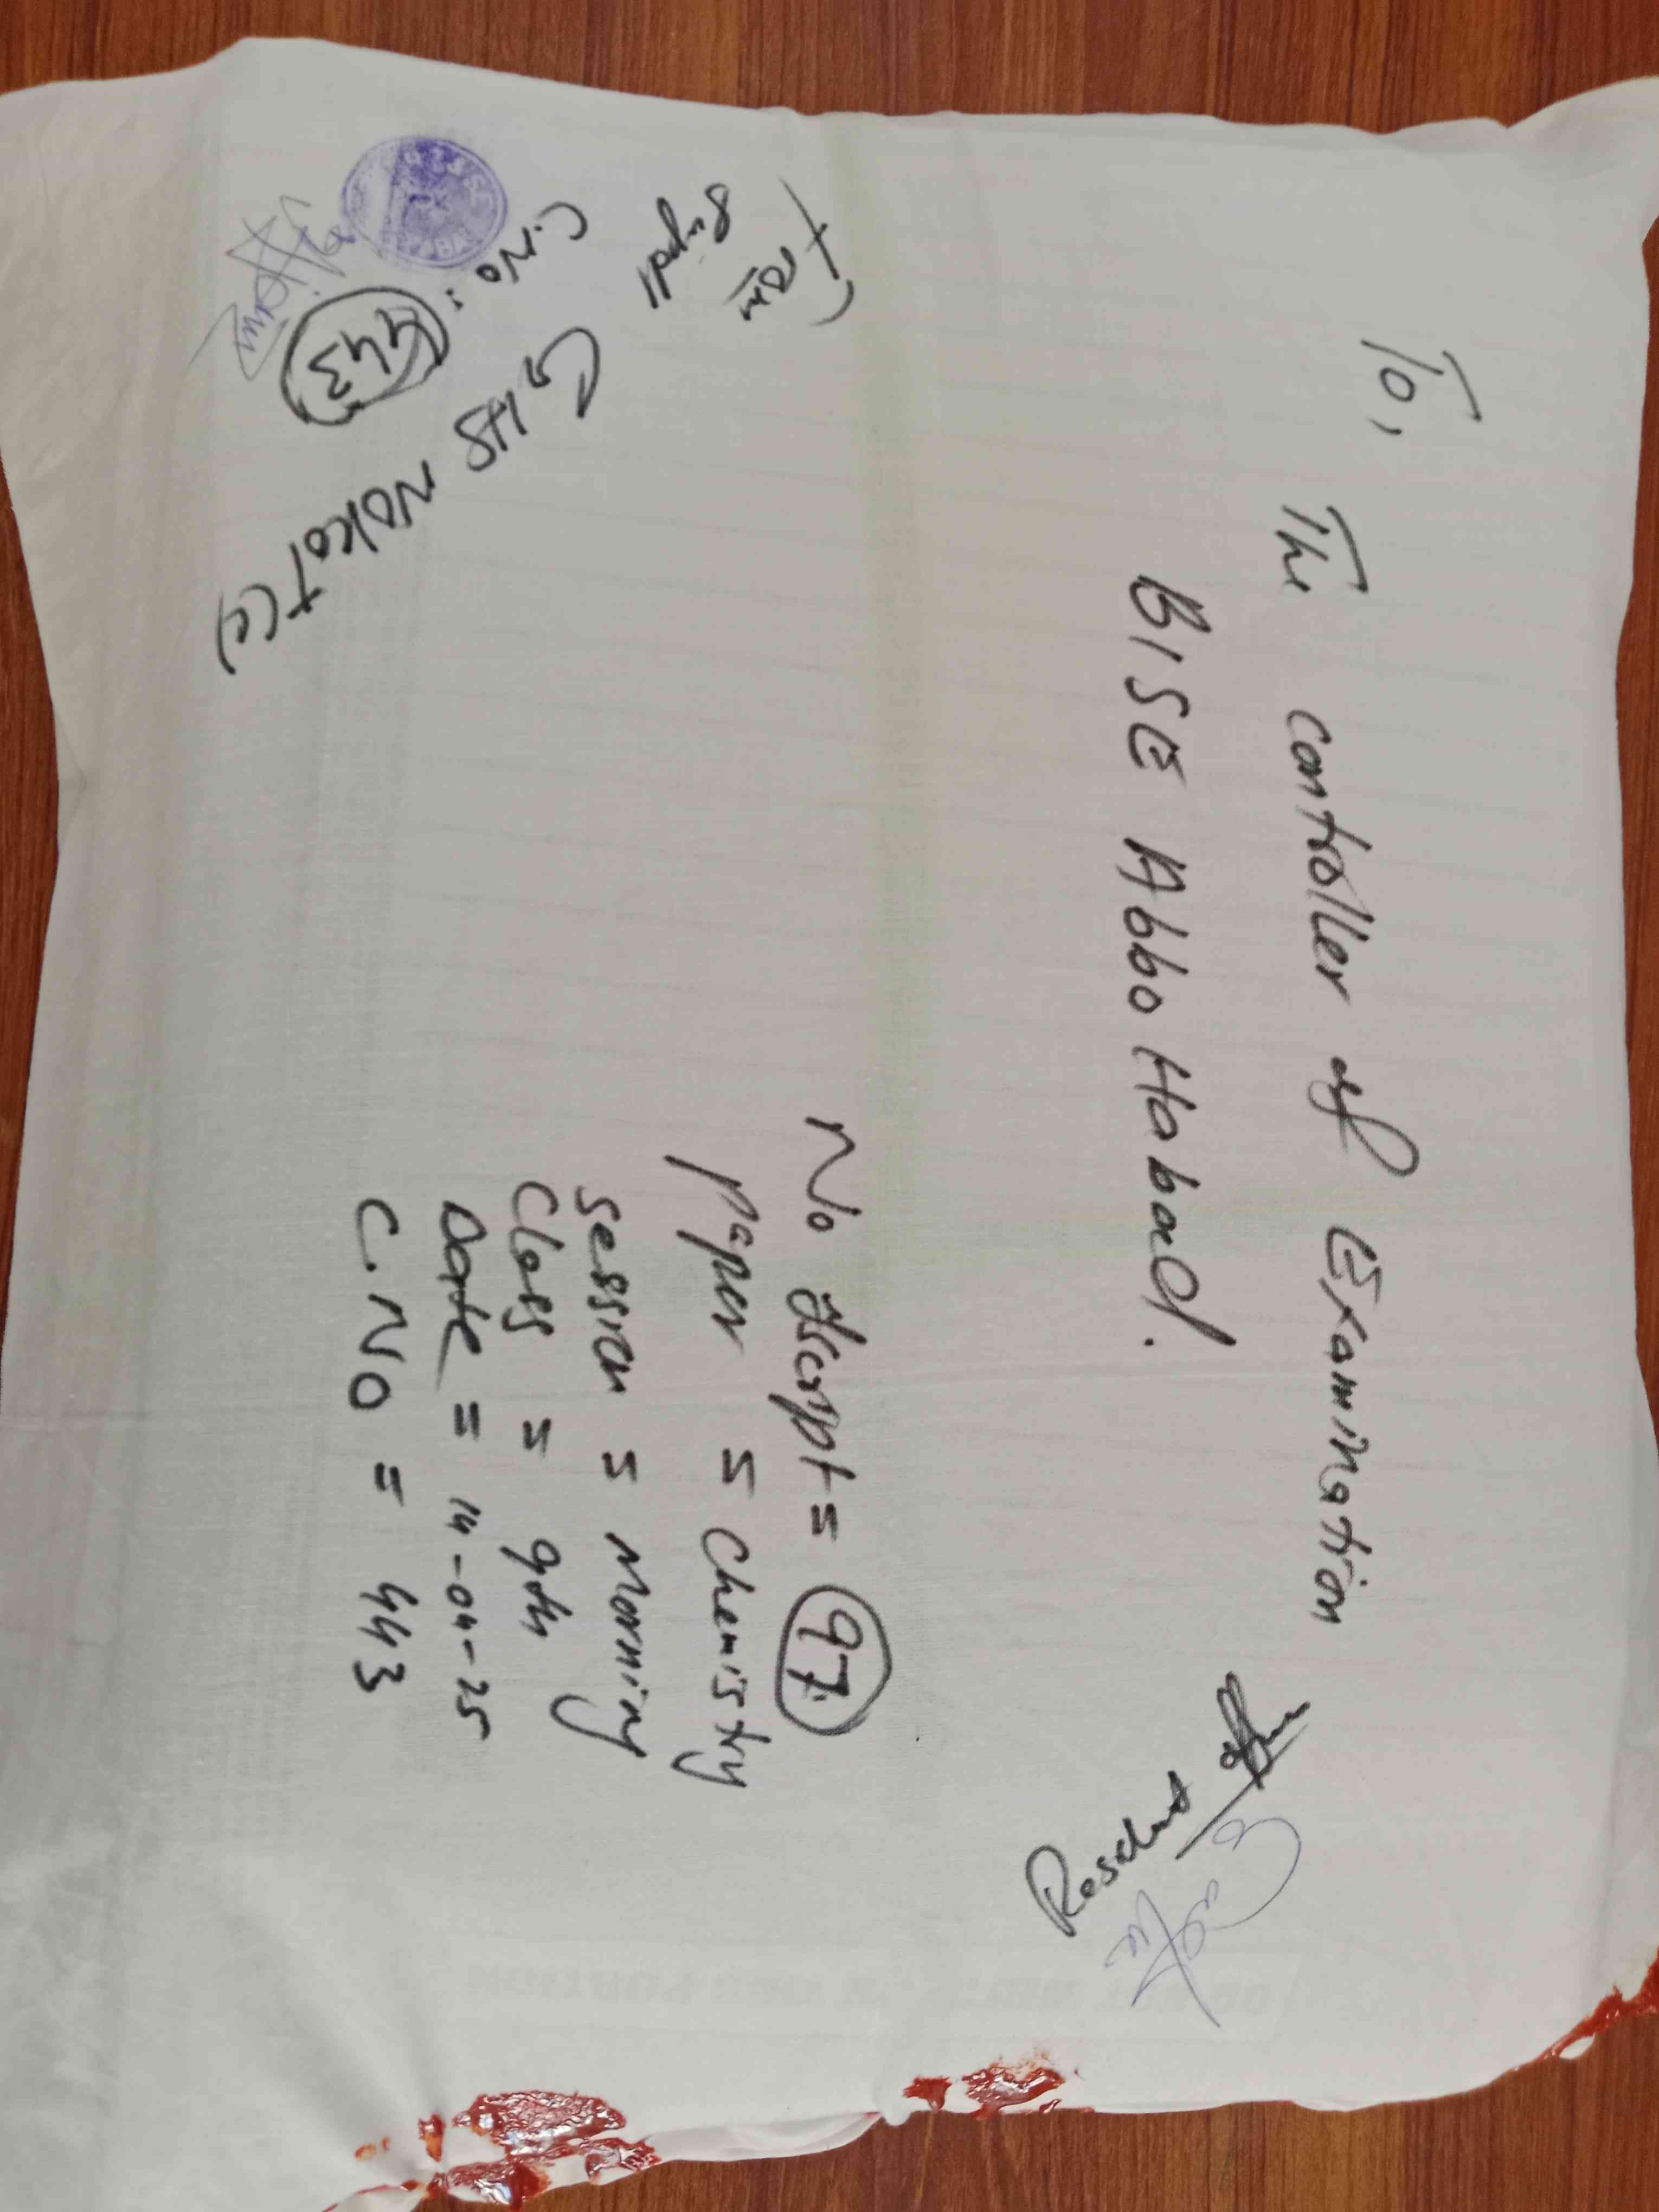 To,
The Controller of Examination
BISE Abbo Habad.
No Script = 97.
Paper = Chemistry
Session = Morning
Class = 9th
Date = 14-04-25
C.NO = 443
From
Supdt
C.No: 443
GHS Nokot (c)